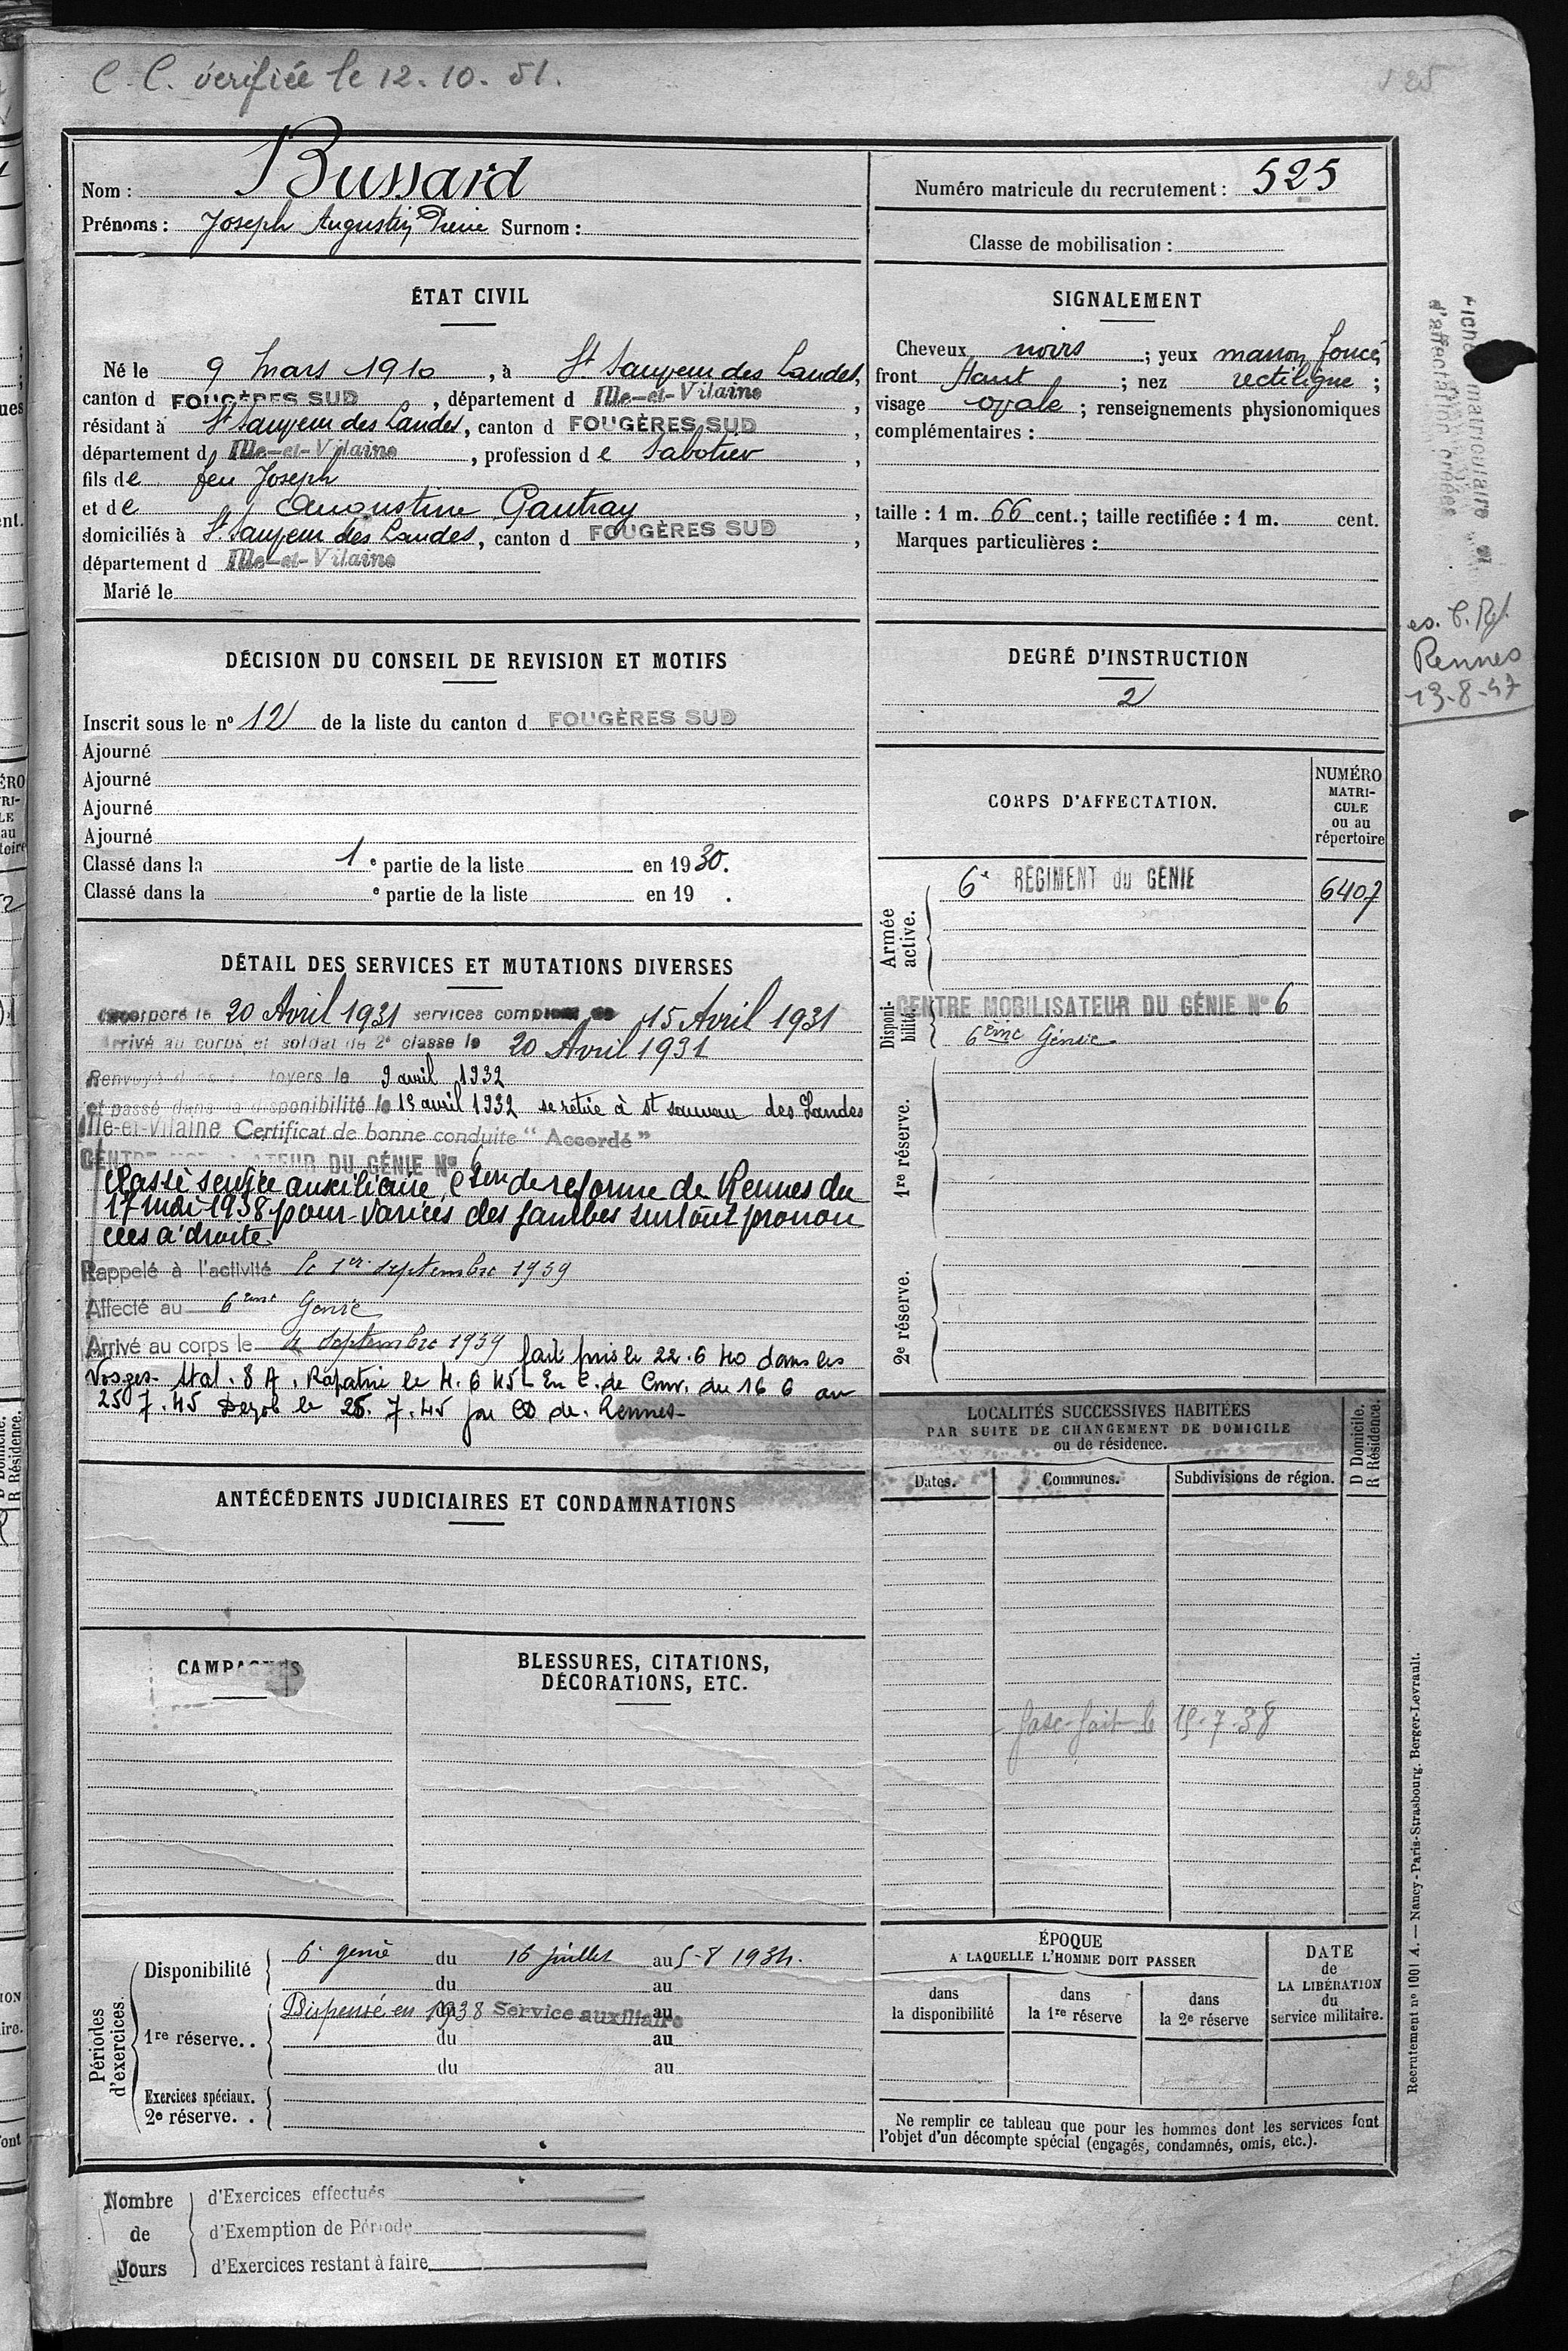 C. C. vérifiée le 12. 10. 51.
Nom : Bussard
Prénoms : Joseph Augustin Pierre Surnom :
Numéro matricule du recrutement : 525
Classe de mobilisation :
ÉTAT CIVIL
Né le 9 Mars 1910, à St Sauveur des Landes,
canton d FOUGÈRES SUD, département d Ille-et-Vilaine,
résidant à St Sauveur des Landes, canton d FOUGÈRES SUD,
département d Ille-et-Vilaine, profession de Sabotier,
fils de feu Joseph
et de Augustine Gautray,
domiciliés à St Sauveur des Landes, canton d FOUGÈRES SUD,
département d Ille-et-Vilaine
Marié le
SIGNALEMENT
Cheveux noirs ; yeux marron foncé;
front Haut ; nez rectiligne ;
visage ovale ; renseignements physionomiques
complémentaires :
taille : 1 m. 66 cent.; taille rectifiée : 1 m. cent.
Marques particulières :
Fiche matriculaire et
d'affectation créées
Rennes
13-8-47
DÉCISION DU CONSEIL DE REVISION ET MOTIFS
Inscrit sous le n° 12 de la liste du canton d FOUGÈRES SUD
Ajourné
Ajourné
Ajourné
Ajourné
Classé dans la 1e partie de la liste en 1930.
Classé dans la e partie de la liste en 19 .
DEGRÉ D'INSTRUCTION
2
CORPS D'AFFECTATION.
NUMÉRO
MATRI-
CULE
ou au
répertoire
Armée active.
6e RÉGIMENT du GÉNIE
6407
Disponi-bilité.
CENTRE MOBILISATEUR DU GÉNIE N° 6
6ème Génie
1re réserve.
2e réserve.
DÉTAIL DES SERVICES ET MUTATIONS DIVERSES
Incorporé le 20 Avril 1931 services comptant du 15 Avril 1931
Arrivé au corps et soldat de 2e classe le 20 Avril 1931
Renvoyé dans ses foyers le 9 avril 1932
et passé dans la disponibilité le 15 avril 1932 se retire à st sauveur des Landes
Ille-et-Vilaine Certificat de bonne conduite "Accordé"
CENTRE MOBILISATEUR DU GÉNIE N° 6
Classé service auxiliaire, Con de réforme de Rennes du
17 mai 1938 pour varices des jambes surtout pronon
cées à droite
Rappelé à l'activité le 1er septembre 1939
Affecté au 6ème Génie
Arrivé au corps le 4 septembre 1939 fait pris le 22.6 40 dans les
Vosges Stal. 8 A. Rapatrié le 4. 6 45 - En C. de Conv. du 16 6 au
25 7. 45 Demob le 25. 7. 45 par CD de Rennes -
LOCALITÉS SUCCESSIVES HABITÉES
PAR SUITE DE CHANGEMENT DE DOMICILE
ou de résidence.
D Domicile.
R Résidence.
Dates.
Communes.
Subdivisions de région.
fasc. fait le 15-7-38
ANTÉCÉDENTS JUDICIAIRES ET CONDAMNATIONS
CAMPAGNES
BLESSURES, CITATIONS,
DÉCORATIONS, ETC.
Périodes d'exercices.
Disponibilité
6e génie du 16 juillet au 5-8 1934.
du au
1re réserve..
Dispensé en 1938 Service auxiliaire
du au
du au
du au
Exercices spéciaux.
2e réserve. .
ÉPOQUE
A LAQUELLE L'HOMME DOIT PASSER
dans
la disponibilité
dans
la 1re réserve
dans
la 2e réserve
DATE
de
LA LIBÉRATION
du
service militaire.
Ne remplir ce tableau que pour les hommes dont les services font
l'objet d'un décompte spécial (engagés, condamnés, omis, etc.).
Recrutement n° 1001 A. — Nancy-Paris-Strasbourg. Berger-Levrault.
Nombre
de
Jours
d'Exercices effectués
d'Exemption de Période
d'Exercices restant à faire